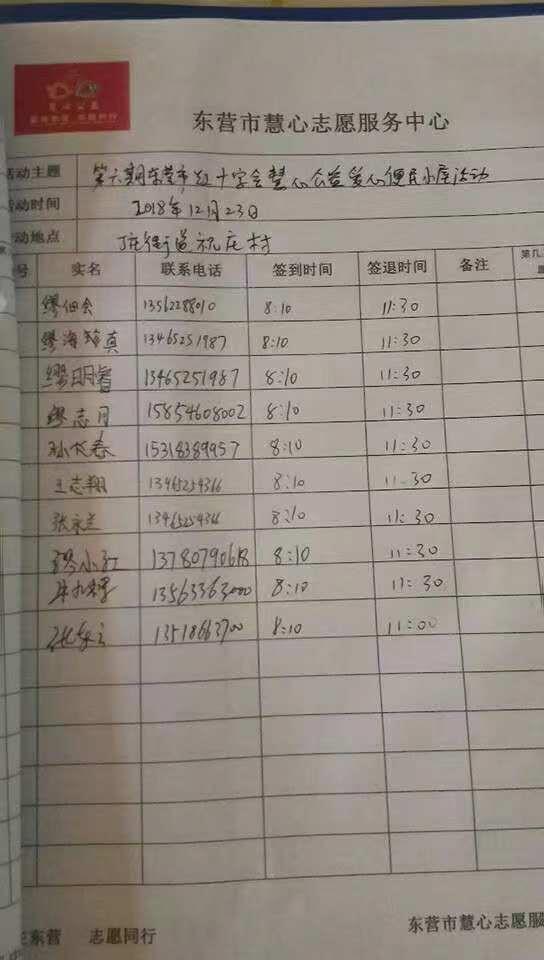 东营市慧心志愿服务中心
活动主题 第六期东营市红十字会慧心公益爱心便民小屋活动
活动时间 2018年12月23日
动地点 庄街道祝庄村
号 实名 联系电话 签到时间 签退时间 备注 第几
缪佃会 13562288010 8:10 11:30
缪海 真 13465251987 8:10 11:30
缪明睿 13465251987 8:10 11:30
缪志月 15854608002 8:10 11:30
孙长春 15318389957 8:10 11:30
王志翔 13465254366 8:10 11:30
张永兰 13465254366 8:10 11:30
缪小红 13780790618 8:10 11:30
13563363000 8:10 11:30
张 13518663700 8:10 11:00
东营 志愿同行 东营市慧心志愿服